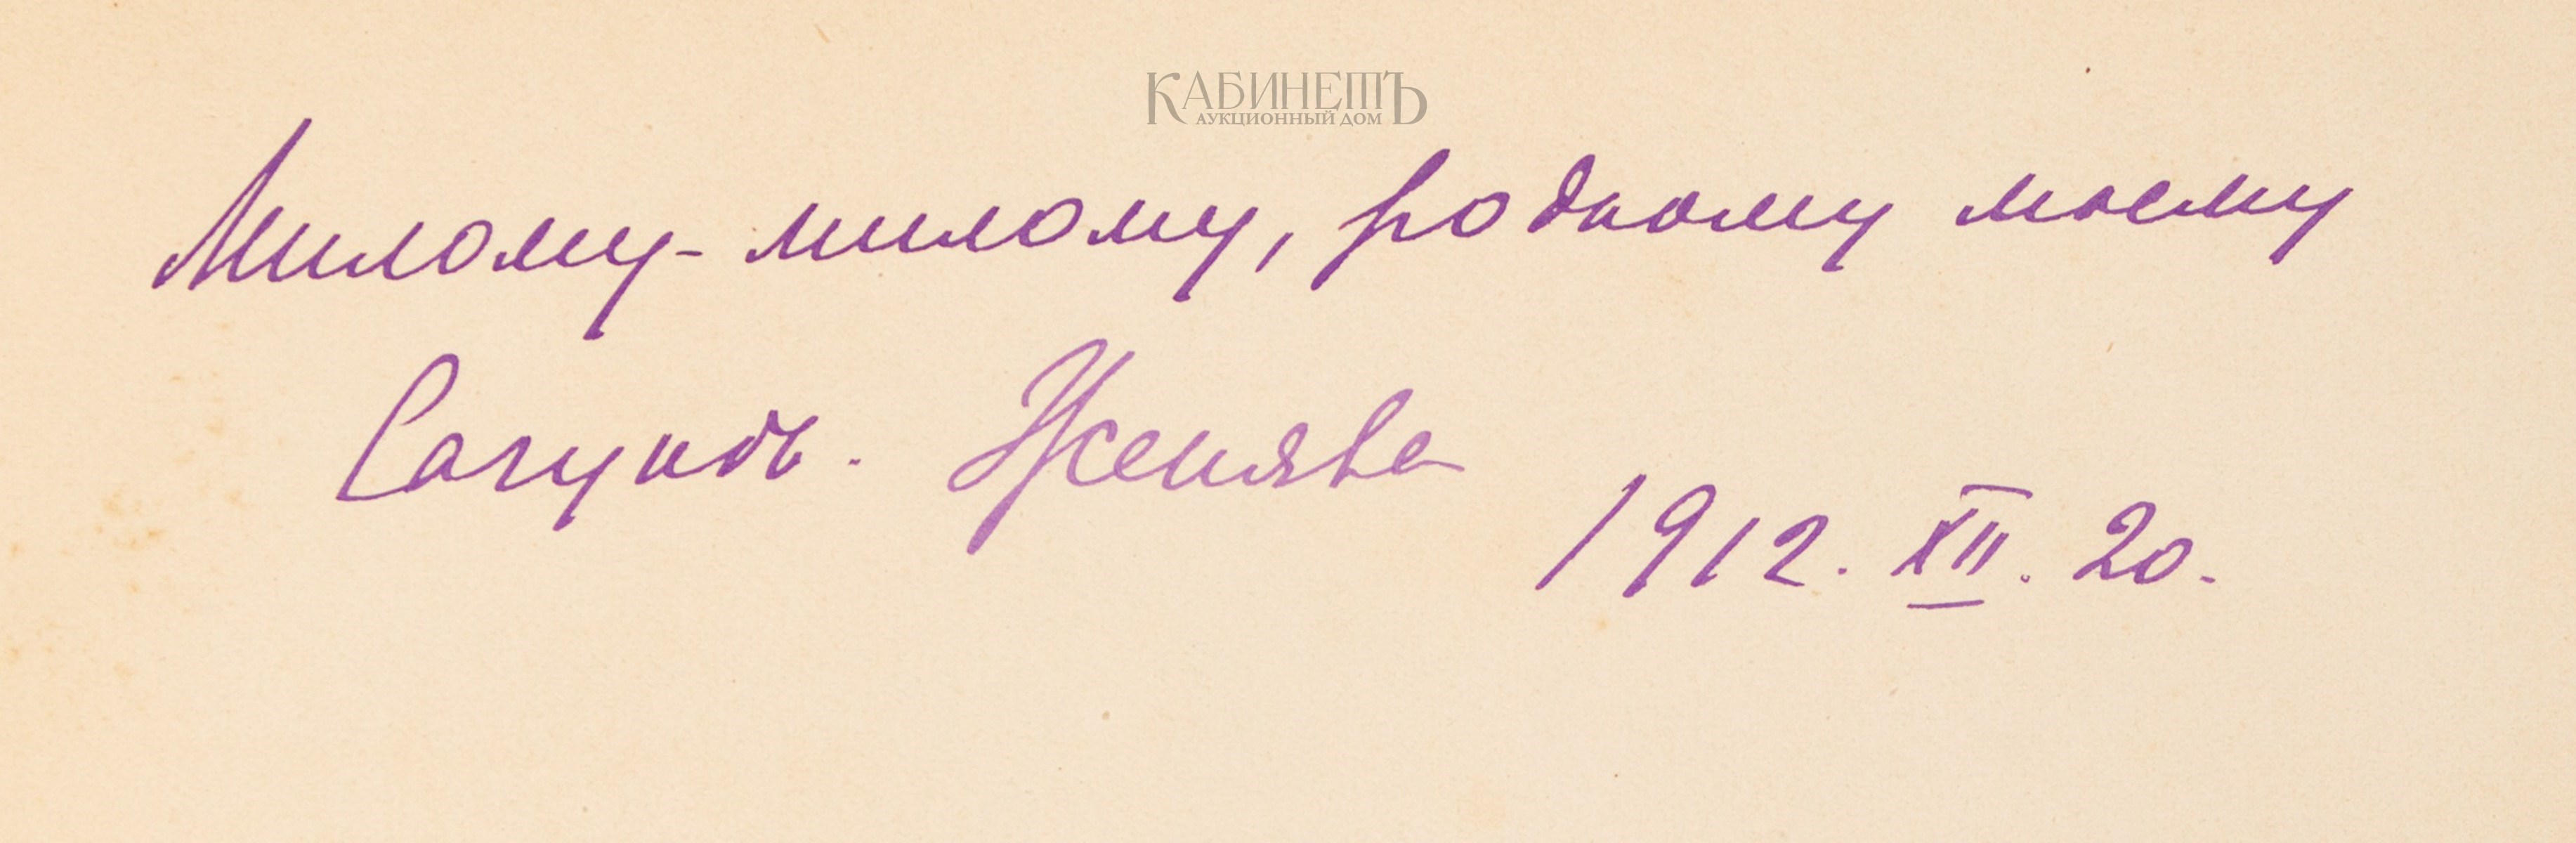 КАБИНЕТЪ
АУКЦИОННЫЙ ДОМ
Милому-милому, родному моему
Сагунѣ. Женява
1912. XII. 20.